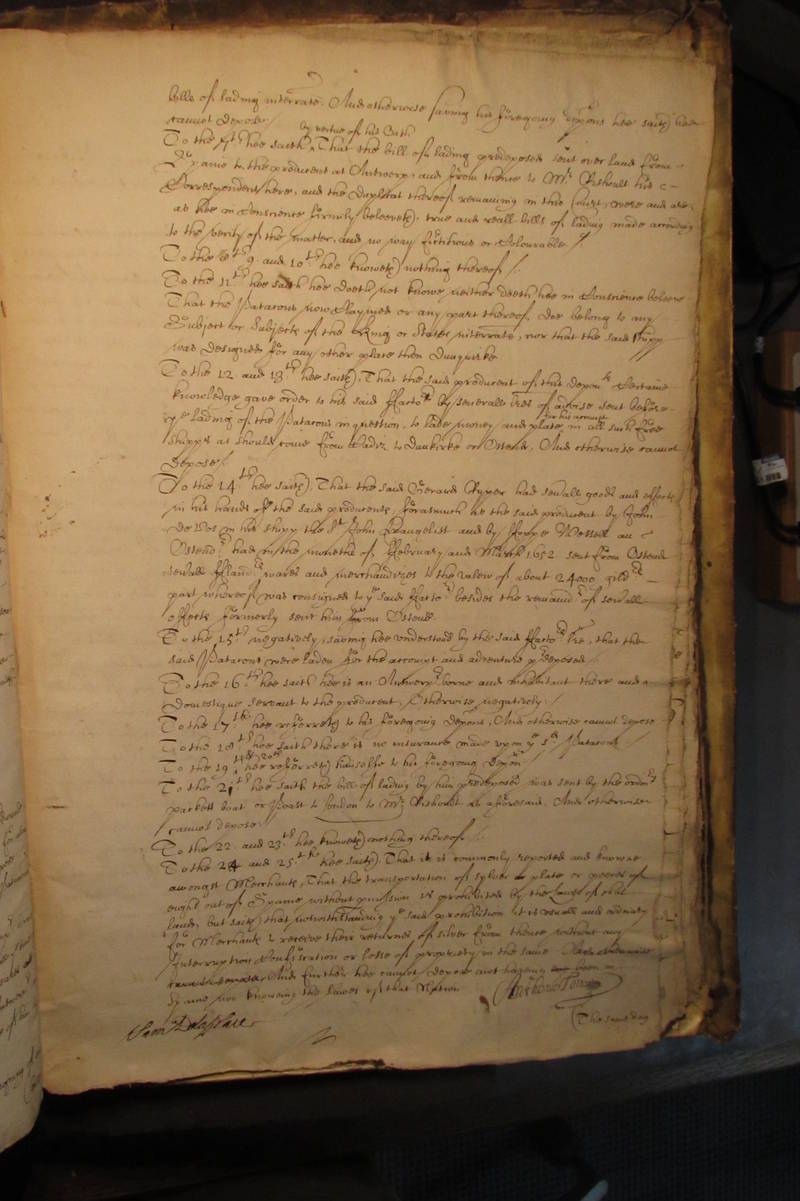 bills of lading interrate. And otherwise saving his foregoing depõons hee saith hee
cannot depose./
by vertue of his Oath
To the 7th hee saith, That the bill of lading predeposed sent over land from
Spaine to the producent at Antwerp, and from thence to Mr Rishoult his
Correspondent here, and the duplicat thereof remaining in this Court, were and are,
as hee in Conscience firmly beleeveth, true and reall bills of lading made according
to the verity of the matter, and no way fictitious or Colourable./
To the 8th 9 and 10th hee knoweth nothing thereof./.
To the 11th hee saith hee doeth not knowe neither doeth hee in Conscience beleeve
That the Patacons now Claymed or any part thereof, doe belong to any
Subject or Subjects of the King or States interrate, nor that the said shipp
was designed for any other place then Dunquirke
To the 12 and 13th hee saith, That the said producent of this deponts Certaine
knowledge gave order to his said Factor by severall lres of advise sent before
ye lading of the Patacons in question, to lade money and plate for his account in all such free
shipps as should come from Cadiz to Dunkirke or Ostend. And otherwise cannot
depose./
To the 14th hee saith, That the said Gerard Cuyper had sevall goods and effects
in his hands of the said producents, forasmuch as the said producent by John
de Vos in his shipp the St John Evangelist and by Pepper Wessell an
Ostender had in the moneths of February and March 1652 sent from Ostend
sevall Flandrs wares and merchandizes to the valew of about 24000 gilds
part whereof was consigned to ye said Factor besides the remaindr of sevall
effects formerly sent him from Ostend.
To the 15th negatively, saving hee understood by the said Factors lre, that the
said Patacons were laden for the accompt and adventure predeposed./
To the 16th hee saith hee is an Antwerper borne and inhabitant there and a
domestique servant to the producent, Otherwise negatively./
To the 17th hee referreth to his foregoing depons, And otherwise cannot depose
To the 18th hee saith there is no insurance made upon ye sd Patacons
To the 19th and 20th hee referreth himselfe to his foregoing depõn
To the 21th hee saith the bill of lading by him predeposed was sent by the ordinry
packett boat or Poast to London to Mr Rishoult as aforesaid, And otherwise
cannot depose
To the 22 and 23th hee knoweth nothing thereof./.
To the 24 and 25th hee saith, That it is commonly reported and knowne
amongst Merchants, That the transportation of sylver plate or peeces of
eight out of Spaine without permission is prohibited by the Lawes of that
land, but saith that notwithstanding ye said prohibition it is usuall and ordinary
for Merchants to receive their returnes of silver from thence without any
Interruption Confiscation or losse of propriety in the same
And further hee cannot depose not having been in
Spaine nor knowing the lawes of that Nation
The same day